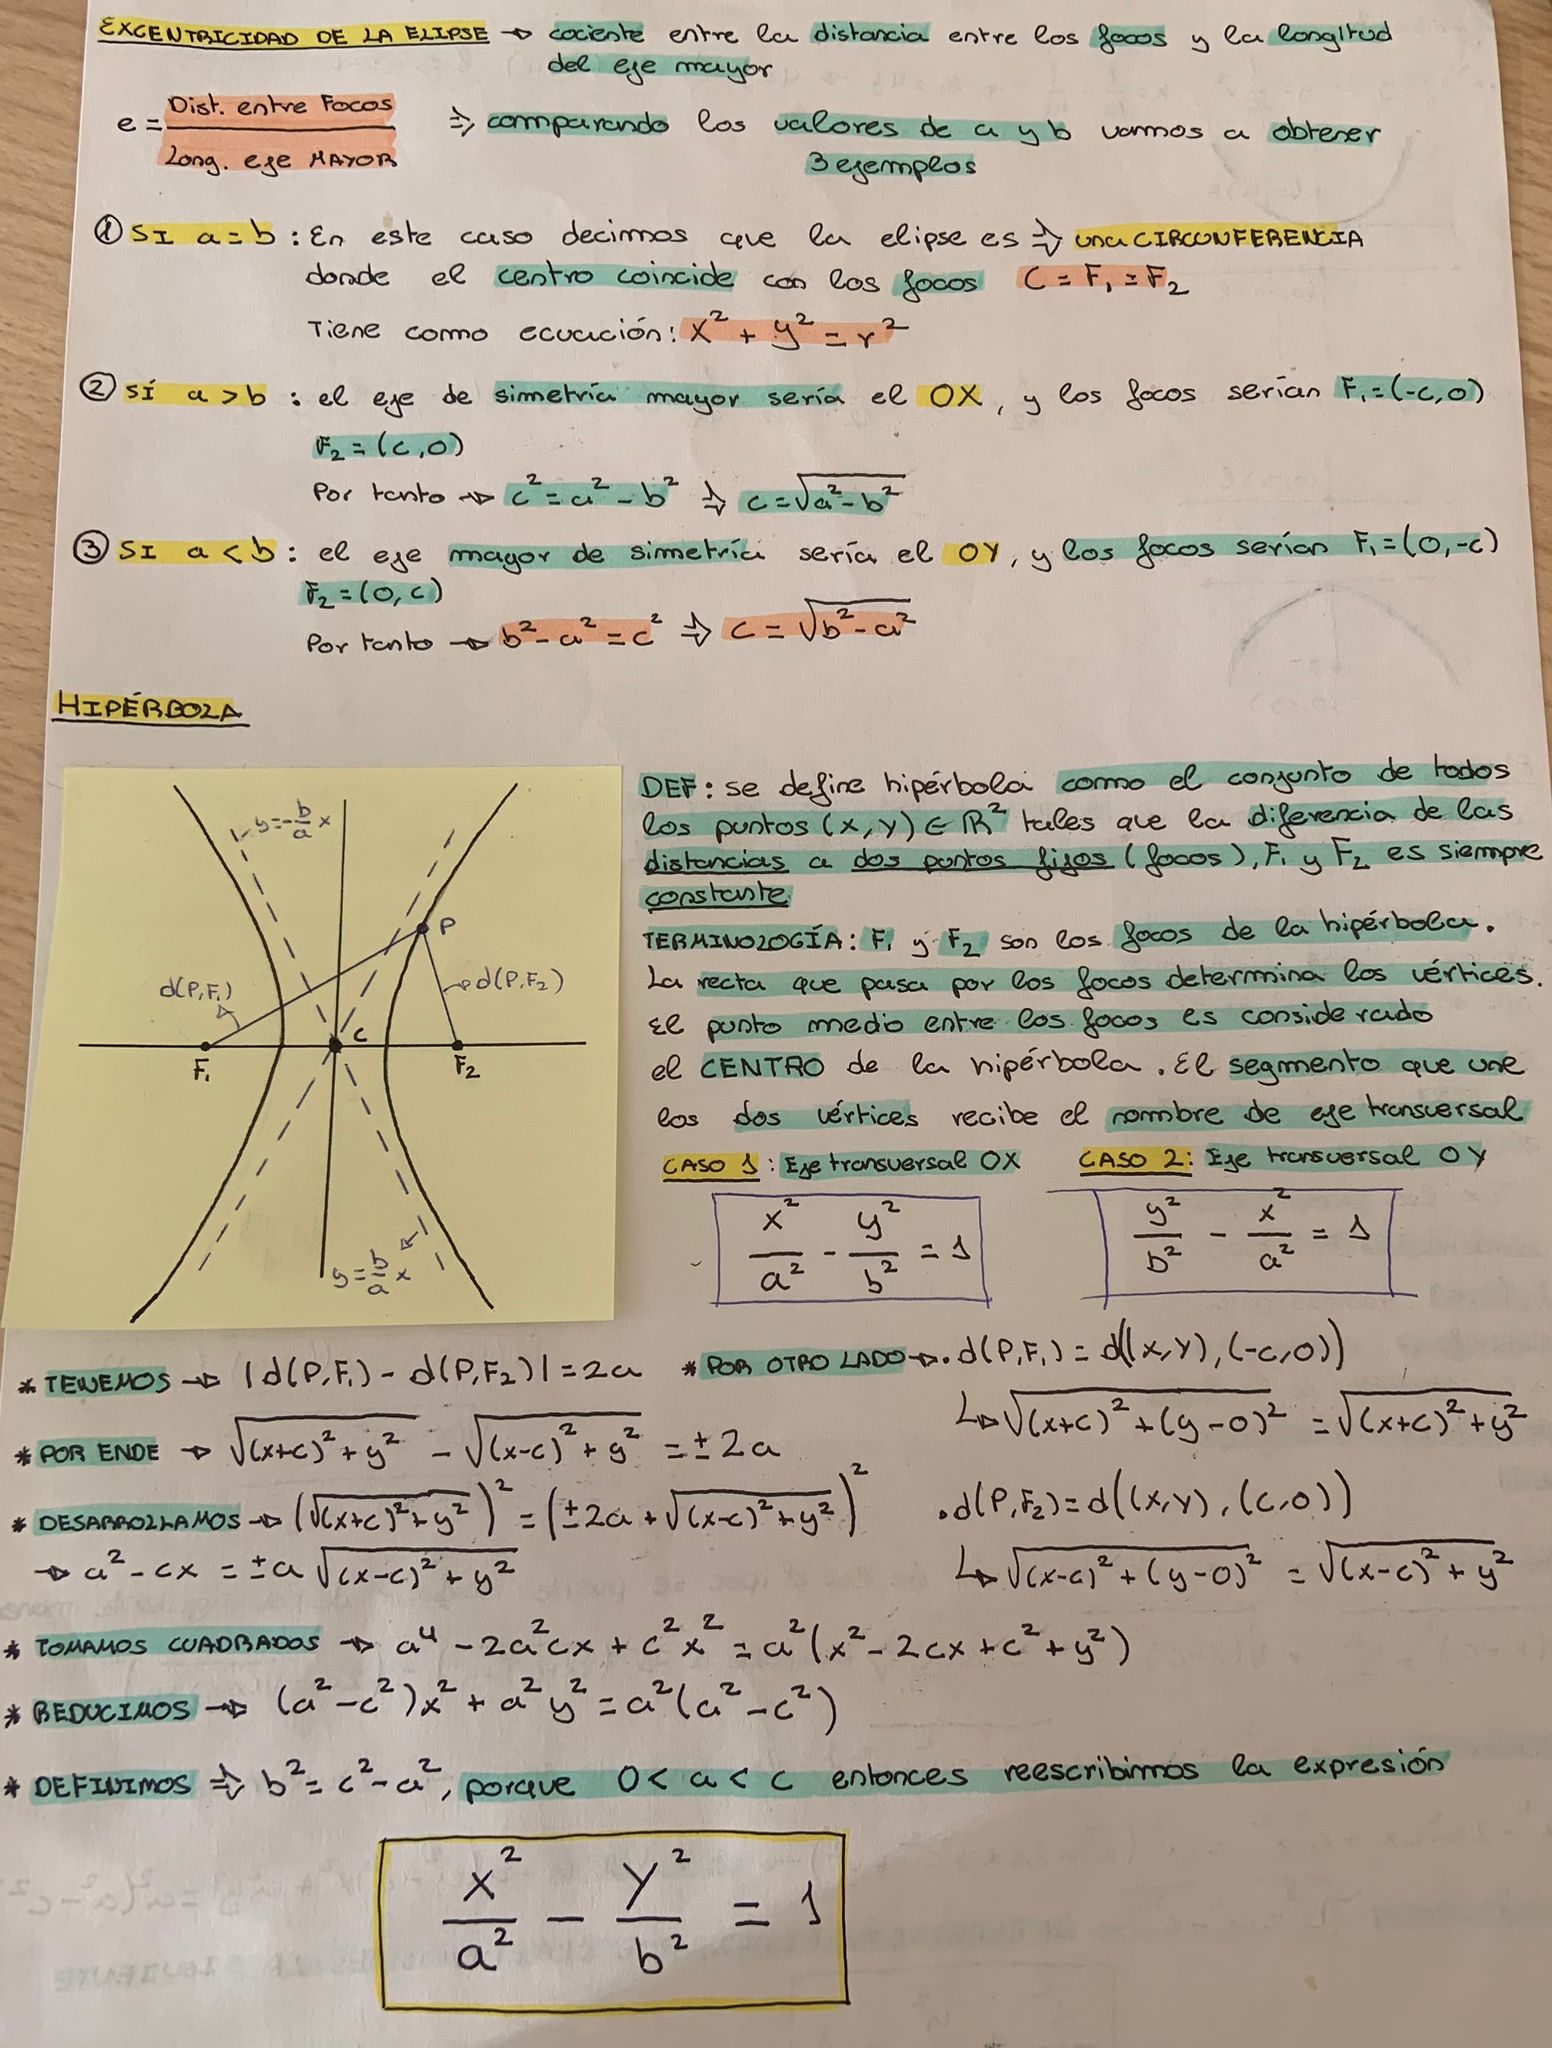 EXCENTRICIDAD DE LA ELIPSE → cociente entre la distancia entre los focos y la longitud
del eje mayor
e = Dist. entre Focos / Long. eje MAYOR ⇒ comparando los valores de a y b vamos a obtener
3 ejemplos
① SI a = b : En este caso decimos que la elipse es ⇒ una CIRCUNFERENCIA
donde el centro coincide con los focos C = F₁ = F₂
Tiene como ecuación: x² + y² = r²
② SÍ a > b : el eje de simetría mayor sería el OX, y los focos serían F₁=(-c,0)
F₂ = (c,0)
Por tanto → c² = a² - b² ⇒ c = √(a² - b²)
③ SI a < b : el eje mayor de simetría sería el OY, y los focos serían F₁=(0,-c)
F₂ = (0,c)
Por tanto → b² - a² = c² ⇒ c = √(b² - a²)
HIPÉRBOLA
y = -b/a x
P
d(P,F₁)
d(P,F₂)
C
F₁
F₂
y = b/a x
DEF : se define hipérbola como el conjunto de todos
los puntos (x,y) ∈ ℝ² tales que la diferencia de las
distancias a dos puntos fijos (focos), F₁ y F₂ es siempre
constante
TERMINOLOGÍA: F₁ y F₂ son los focos de la hipérbola.
La recta que pasa por los focos determina los vértices.
El punto medio entre los focos es considerado
el CENTRO de la hipérbola. El segmento que une
los dos vértices recibe el nombre de eje transversal
CASO 1 : Eje transversal OX
x²/a² - y²/b² = 1
CASO 2: Eje transversal OY
y²/b² - x²/a² = 1
* TENEMOS → |d(P,F₁) - d(P,F₂)| = 2a
* POR ENDE → √((x+c)² + y²) - √((x-c)² + y²) = ± 2a
* DESARROLLAMOS → (√((x+c)² + y²))² = (± 2a + √((x-c)² + y²))²
→ a² - cx = ± a √((x-c)² + y²)
* POR OTRO LADO → . d(P,F₁) = d((x,y), (-c,0))
↳ √((x+c)² + (y-0)²) = √((x+c)² + y²)
. d(P,F₂) = d((x,y), (c,0))
↳ √((x-c)² + (y-0)²) = √((x-c)² + y²)
* TOMAMOS CUADRADOS → a⁴ - 2a²cx + c²x² = a²(x² - 2cx + c² + y²)
* REDUCIMOS → (a² - c²)x² + a²y² = a²(a² - c²)
* DEFINIMOS ⇒ b² = c² - a², porque 0 < a < c entonces reescribimos la expresión
x²/a² - y²/b² = 1